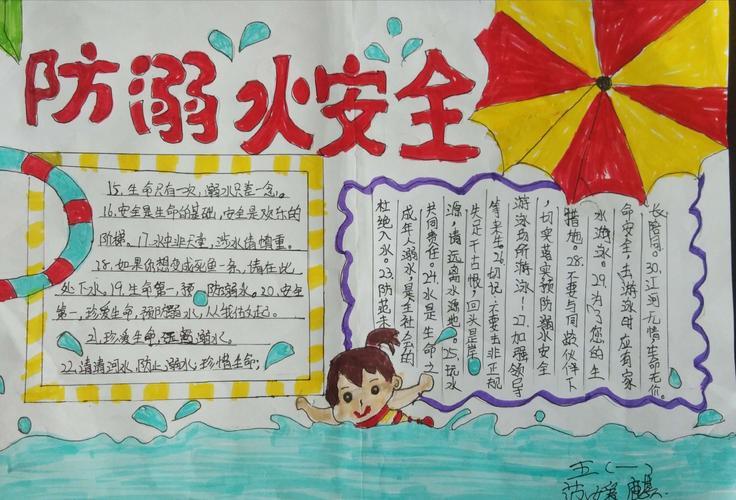 防溺水安全
15.生命只有一次,溺水只差一念。
16.安全是生命的基础,安全是欢乐的
阶梯。17.水中非天堂,涉水倍慎重。
18.如果你想变成死鱼一条,请在此
处下水。19.生命第一,预防溺水。20.安全
第一,珍爱生命,预防溺水,从我做起。
21.珍爱生命,远离溺水。
22.清清河水,防止溺水,珍惜生命;
杜绝入水。23.防范未
成年人溺水,是全社会的
共同责任。24.水是生命之
源,请远离水源地。25.玩水
失足千古恨,回头是岸
等来生26.切记:不要去非正规
游泳场所游泳!27.加强领导
,切实落实预防溺水安全
措施。28.不要与同龄伙伴下
水游泳。29.为了您的生
命安全,去游泳时应有家
长陪同。30.江河无情生命无价。
五(一)